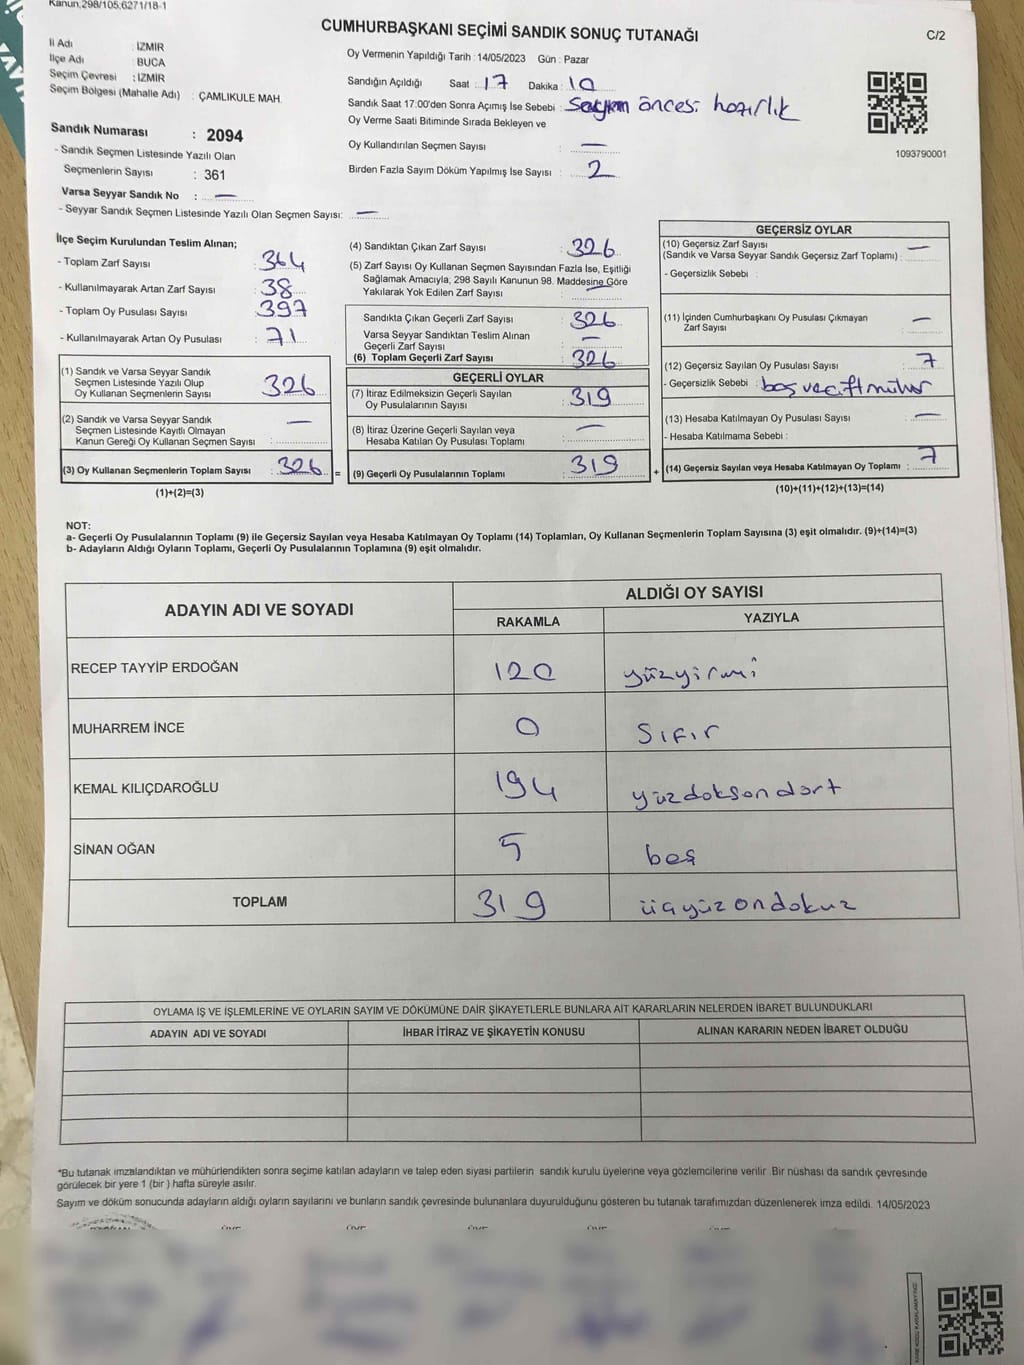 Kanun,298/105,6271/18-1
CUMHURBAŞKANI SEÇİMİ SANDIK SONUÇ TUTANAĞI
C/2
İl Adı : İZMİR
İlçe Adı : BUCA
Seçim Çevresi : İZMİR
Seçim Bölgesi (Mahalle Adı) : ÇAMLIKULE MAH.
Sandık Numarası : 2094
- Sandık Seçmen Listesinde Yazılı Olan
Seçmenlerin Sayısı : 361
Varsa Seyyar Sandık No : —
- Seyyar Sandık Seçmen Listesinde Yazılı Olan Seçmen Sayısı: —
Oy Vermenin Yapıldığı Tarih : 14/05/2023 Gün : Pazar
Sandığın Açıldığı Saat : 17 Dakika : 10
Sandık Saat 17:00'den Sonra Açımış İse Sebebi : Sayım öncesi hazırlık
Oy Verme Saati Bitiminde Sırada Bekleyen ve
Oy Kullandırılan Seçmen Sayısı : —
Birden Fazla Sayım Döküm Yapılmış İse Sayısı : 2
1093790001
İlçe Seçim Kurulundan Teslim Alınan;
- Toplam Zarf Sayısı : 364
- Kullanılmayarak Artan Zarf Sayısı : 38
- Toplam Oy Pusulası Sayısı : 397
- Kullanılmayarak Artan Oy Pusulası : 71
(1) Sandık ve Varsa Seyyar Sandık
Seçmen Listesinde Yazılı Olup
Oy Kullanan Seçmenlerin Sayısı : 326
(2) Sandık ve Varsa Seyyar Sandık
Seçmen Listesinde Kayıtlı Olmayan
Kanun Gereği Oy Kullanan Seçmen Sayısı : —
(3) Oy Kullanan Seçmenlerin Toplam Sayısı : 326 =
(1)+(2)=(3)
(4) Sandıktan Çıkan Zarf Sayısı : 326
(5) Zarf Sayısı Oy Kullanan Seçmen Sayısından Fazla İse, Eşitliği
Sağlamak Amacıyla, 298 Sayılı Kanunun 98. Maddesine Göre
Yakılarak Yok Edilen Zarf Sayısı : —
Sandıkta Çıkan Geçerli Zarf Sayısı : 326
Varsa Seyyar Sandıktan Teslim Alınan
Geçerli Zarf Sayısı : —
(6) Toplam Geçerli Zarf Sayısı : 326
GEÇERLİ OYLAR
(7) İtiraz Edilmeksizin Geçerli Sayılan
Oy Pusulalarının Sayısı : 319
(8) İtiraz Üzerine Geçerli Sayılan veya
Hesaba Katılan Oy Pusulası Toplamı : —
(9) Geçerli Oy Pusulalarının Toplamı : 319 +
GEÇERSİZ OYLAR
(10) Geçersiz Zarf Sayısı —
(Sandık ve Varsa Seyyar Sandık Geçersiz Zarf Toplamı) :
- Geçersizlik Sebebi :
(11) İçinden Cumhurbaşkanı Oy Pusulası Çıkmayan
Zarf Sayısı : —
(12) Geçersiz Sayılan Oy Pusulası Sayısı : 7
- Geçersizlik Sebebi : boş ve çift mühür
(13) Hesaba Katılmayan Oy Pusulası Sayısı : —
- Hesaba Katılmama Sebebi :
(14) Geçersiz Sayılan veya Hesaba Katılmayan Oy Toplamı : 7
(10)+(11)+(12)+(13)=(14)
NOT:
a- Geçerli Oy Pusulalarının Toplamı (9) ile Geçersiz Sayılan veya Hesaba Katılmayan Oy Toplamı (14) Toplamları, Oy Kullanan Seçmenlerin Toplam Sayısına (3) eşit olmalıdır. (9)+(14)=(3)
b- Adayların Aldığı Oyların Toplamı, Geçerli Oy Pusulalarının Toplamına (9) eşit olmalıdır.
ADAYIN ADI VE SOYADI ALDIĞI OY SAYISI
RAKAMLA YAZIYLA
RECEP TAYYİP ERDOĞAN 120 yüzyirmi
MUHARREM İNCE 0 Sıfır
KEMAL KILIÇDAROĞLU 194 yüzdoksandört
SİNAN OĞAN 5 beş
TOPLAM 319 üçyüzondokuz
OYLAMA İŞ VE İŞLEMLERİNE VE OYLARIN SAYIM VE DÖKÜMÜNE DAİR ŞİKAYETLERLE BUNLARA AİT KARARLARIN NELERDEN İBARET BULUNDUKLARI
ADAYIN ADI VE SOYADI İHBAR İTİRAZ VE ŞİKAYETİN KONUSU ALINAN KARARIN NEDEN İBARET OLDUĞU
*Bu tutanak imzalandıktan ve mühürlendikten sonra seçime katılan adayların ve talep eden siyasi partilerin sandık kurulu üyelerine veya gözlemcilerine verilir. Bir nüshası da sandık çevresinde
görülecek bir yere 1 (bir) hafta süreyle asılır.
Sayım ve döküm sonucunda adayların aldığı oyların sayılarını ve bunların sandık çevresinde bulunanlara duyurulduğunu gösteren bu tutanak tarafımızdan düzenlenerek imza edildi. 14/05/2023